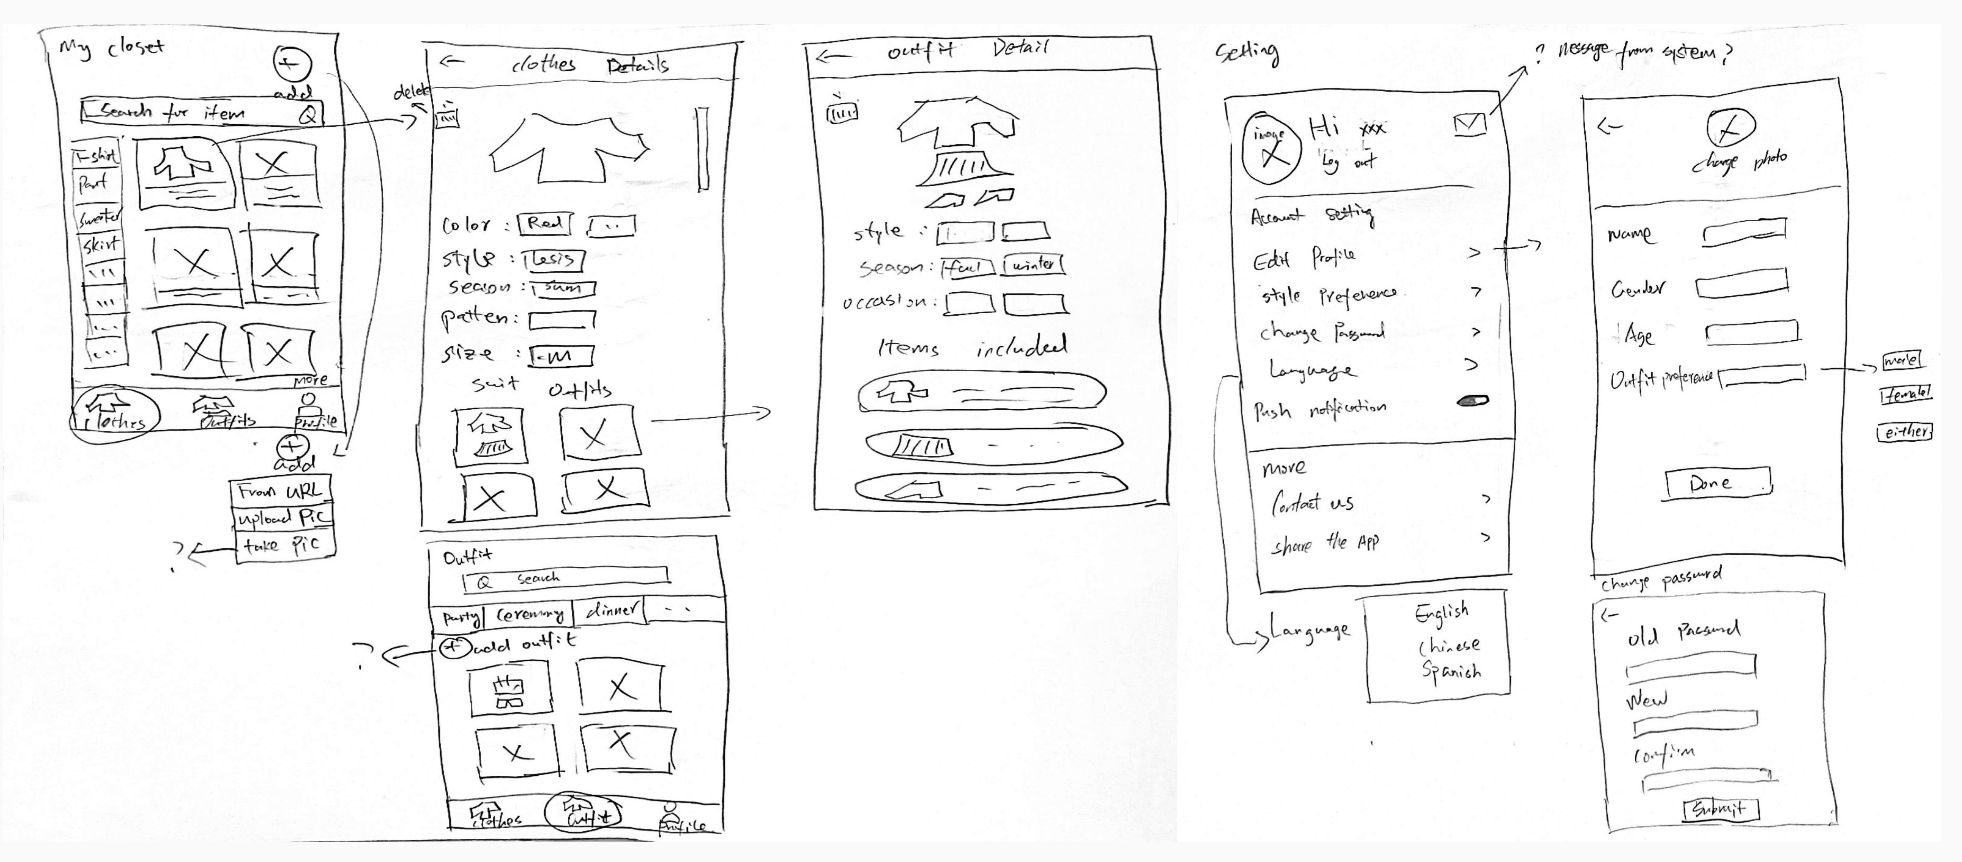 My closet
+
add
Search for item
T-shirt
Part
Sweater
Skirt
more
Clothes
Outfits
Profile
+
add
From URL
upload Pic
take Pic
?
←
clothes Details
delete
color : Red ..
style :
season : sum
patten :
size : M
suit outfits
Outfit
Search
Party
Ceremony
dinner
. .
+ add outfit
?
Clothes
Outfit
Profile
← outfit Detail
style :
season : faul winter
occasion :
Items included
Setting
? message from system?
image
Hi xxx
Log out
Account Setting
Edit Profile >
style Preference >
change Password >
Language >
Push notification
more
Contact us >
share the App >
Language
English
Chinese
Spanish
←
change photo
Name
Gender
Age
Outfit preference
male
female
either
Done
change password
←
old Password
New
Confirm
Submit